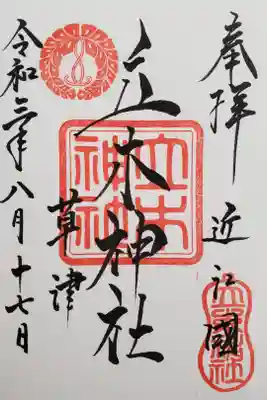 奉拝
近江國
立木神社
草津
令和年八月十七日
立木
神社
立木神社